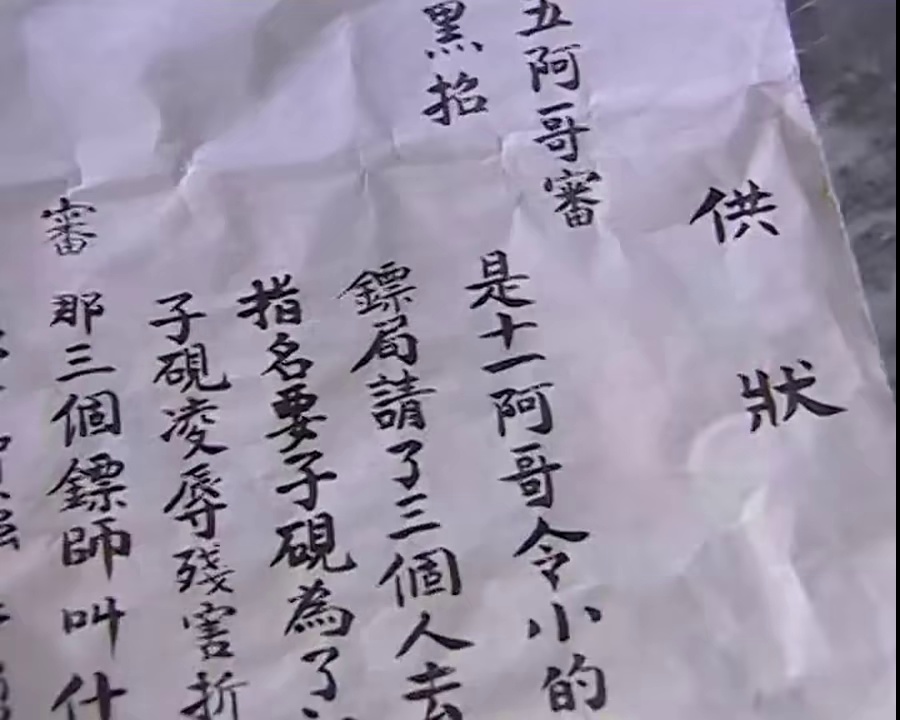 供狀
五阿哥審
黑招
是十一阿哥令小的
鏢局請了三個人去
指名要子硯為了
子硯凌辱殘害折
審
那三個鏢師叫什